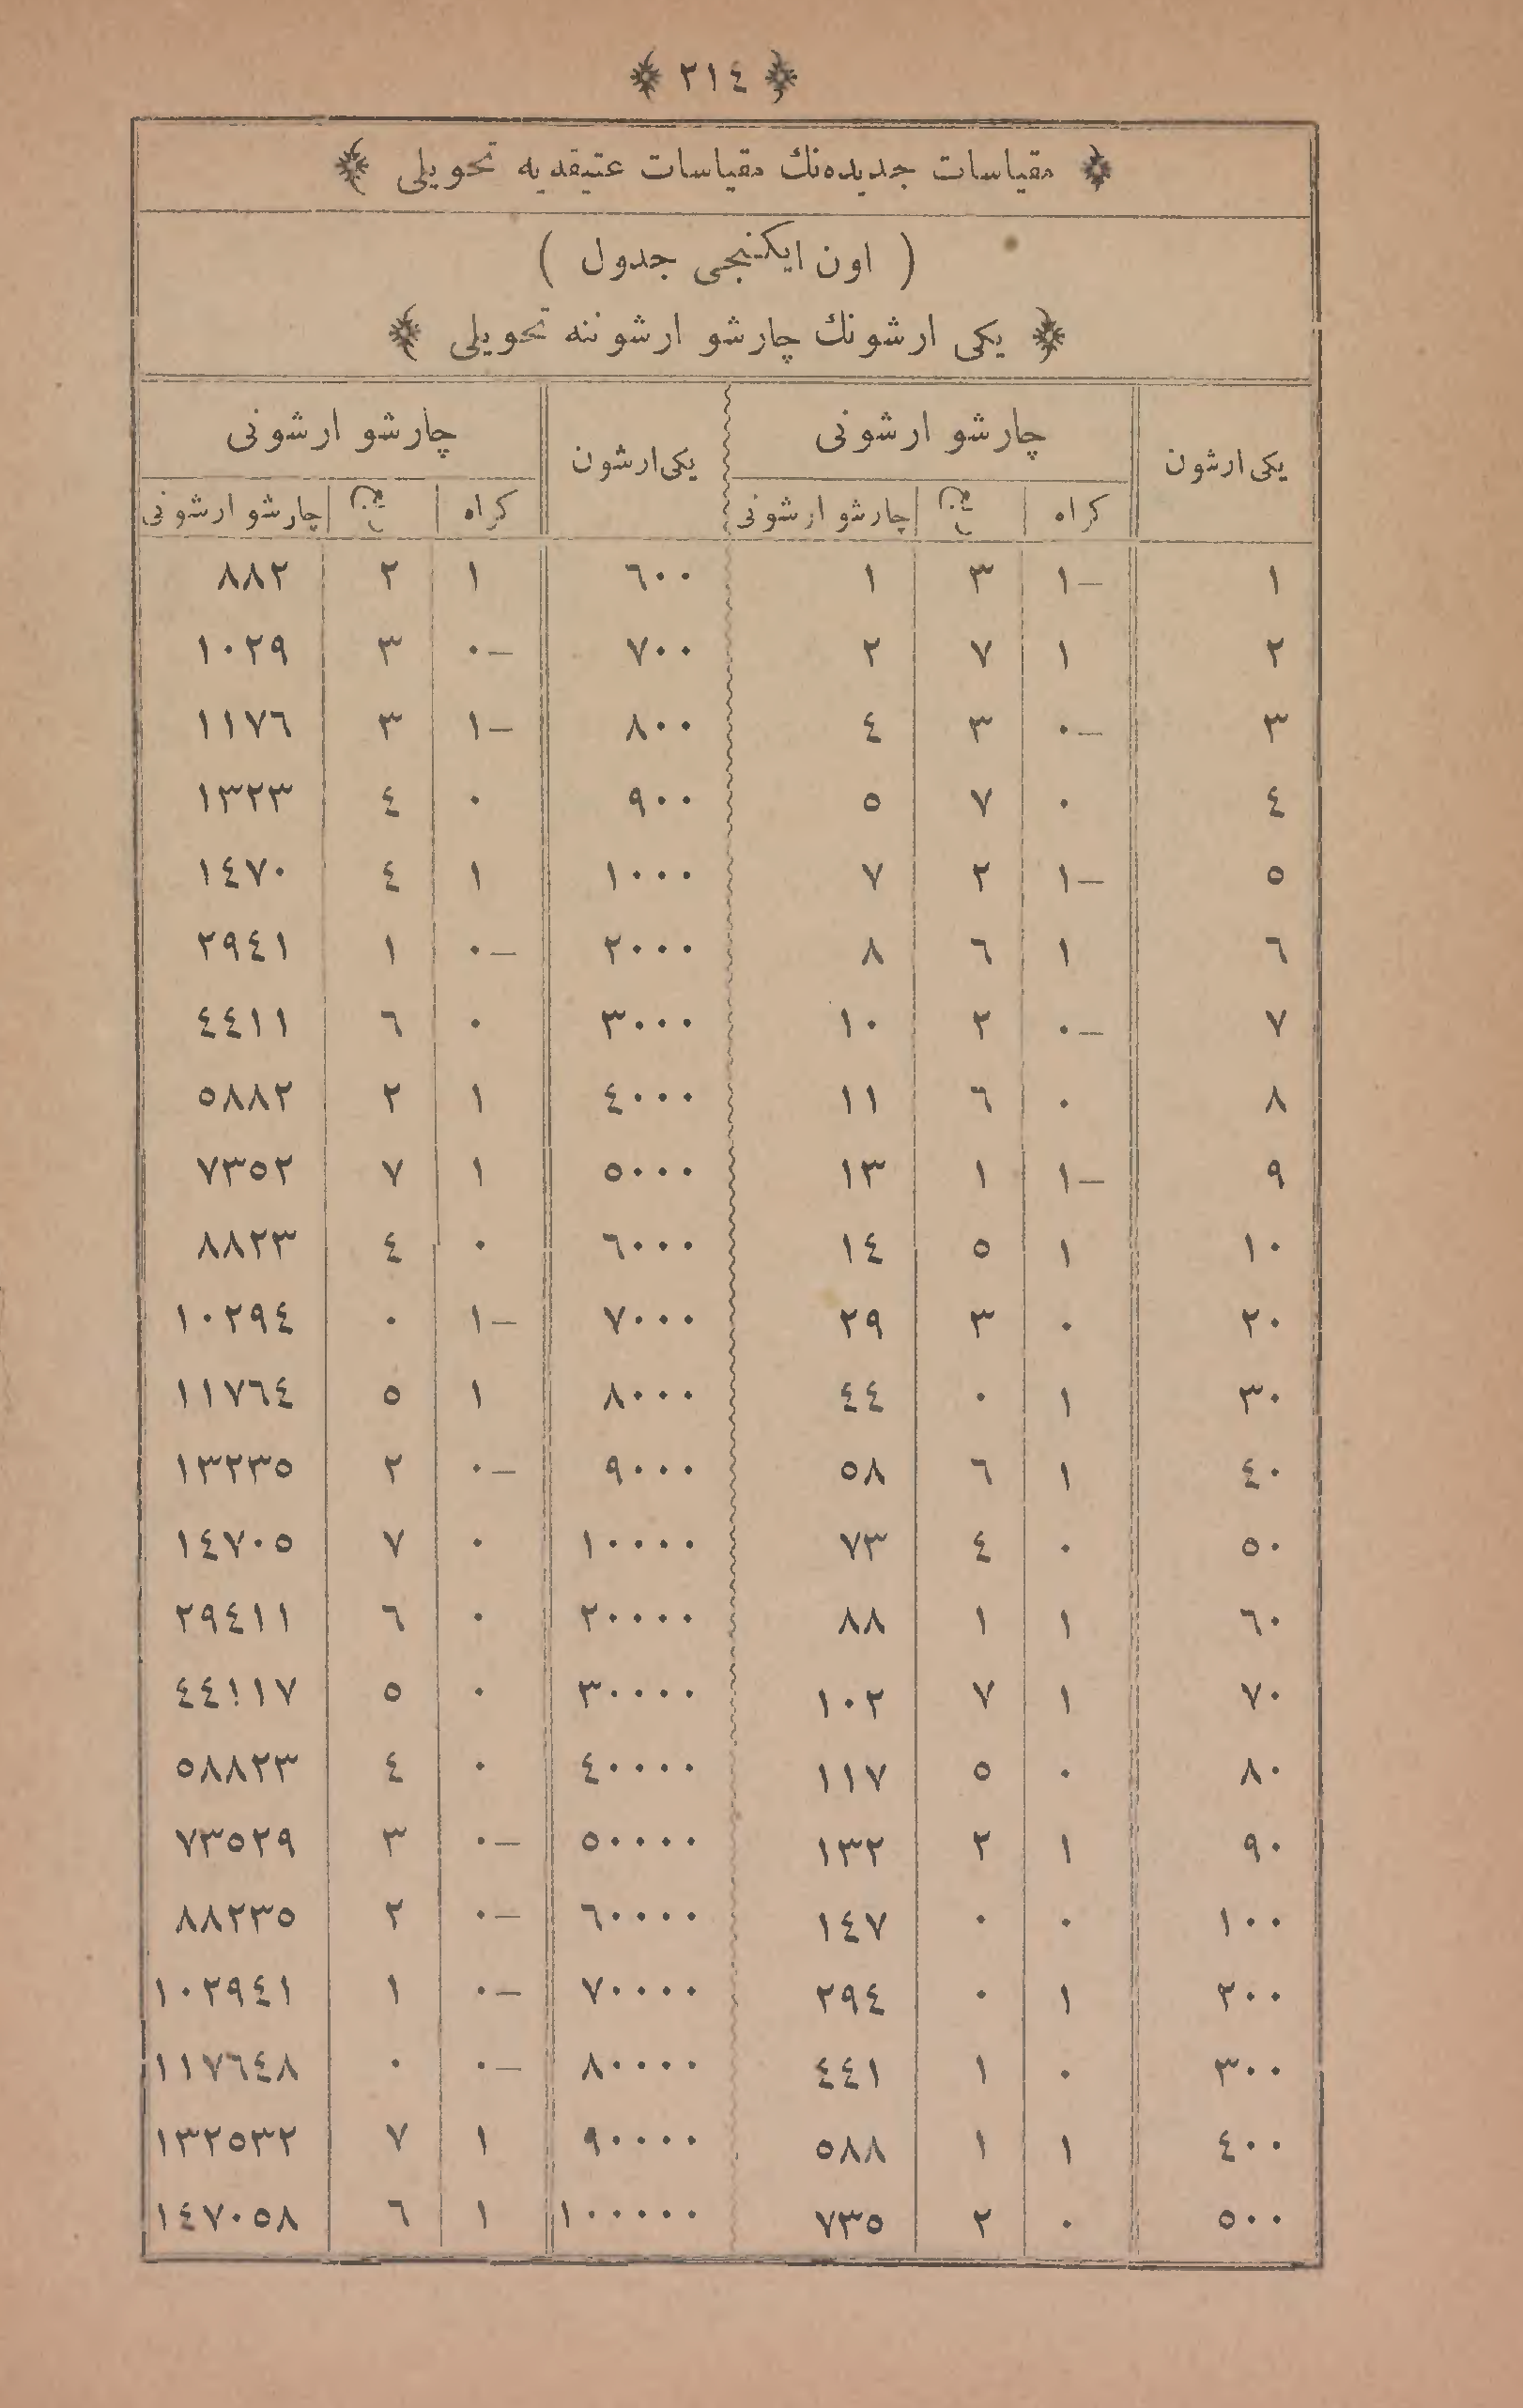 ﴿ ٢١٤ ﴾
﴿ مقياسات جديده‌نك مقياسات عتيقه‌يه تحويلى ﴾
( اون ايكنجى جدول )
﴿ يكى ارشونك چارشو ارشوننه تحويلى ﴾
يكى ارشون | چارشو ارشونى | يكى ارشون | چارشو ارشونى
كراه | | چارشو ارشونى | كراه | | چارشو ارشونى
١ | —١ | ٣ | ١ | ٦٠٠ | ١ | ٢ | ٨٨٢
٢ | ١ | ٧ | ٢ | ٧٠٠ | —٠ | ٣ | ١٠٢٩
٣ | —٠ | ٣ | ٤ | ٨٠٠ | —١ | ٣ | ١١٧٦
٤ | ٠ | ٧ | ٥ | ٩٠٠ | ٠ | ٤ | ١٣٢٣
٥ | —١ | ٢ | ٧ | ١٠٠٠ | ١ | ٤ | ١٤٧٠
٦ | ١ | ٦ | ٨ | ٢٠٠٠ | —٠ | ١ | ٢٩٤١
٧ | —٠ | ٢ | ١٠ | ٣٠٠٠ | ٠ | ٦ | ٤٤١١
٨ | ٠ | ٦ | ١١ | ٤٠٠٠ | ١ | ٢ | ٥٨٨٢
٩ | —١ | ١ | ١٣ | ٥٠٠٠ | ١ | ٧ | ٧٣٥٢
١٠ | ١ | ٥ | ١٤ | ٦٠٠٠ | ٠ | ٤ | ٨٨٢٣
٢٠ | ٠ | ٣ | ٢٩ | ٧٠٠٠ | —١ | ٠ | ١٠٢٩٤
٣٠ | ١ | ٠ | ٤٤ | ٨٠٠٠ | ١ | ٥ | ١١٧٦٤
٤٠ | ١ | ٦ | ٥٨ | ٩٠٠٠ | —٠ | ٢ | ١٣٢٣٥
٥٠ | ٠ | ٤ | ٧٣ | ١٠٠٠٠ | ٠ | ٧ | ١٤٧٠٥
٦٠ | ١ | ١ | ٨٨ | ٢٠٠٠٠ | ٠ | ٦ | ٢٩٤١١
٧٠ | ١ | ٧ | ١٠٢ | ٣٠٠٠٠ | ٠ | ٥ | ٤٤١١٧
٨٠ | ٠ | ٥ | ١١٧ | ٤٠٠٠٠ | ٠ | ٤ | ٥٨٨٢٣
٩٠ | ١ | ٢ | ١٣٢ | ٥٠٠٠٠ | —٠ | ٣ | ٧٣٥٢٩
١٠٠ | ٠ | ٠ | ١٤٧ | ٦٠٠٠٠ | —٠ | ٢ | ٨٨٢٣٥
٢٠٠ | ١ | ٠ | ٢٩٤ | ٧٠٠٠٠ | —٠ | ١ | ١٠٢٩٤١
٣٠٠ | ٠ | ١ | ٤٤١ | ٨٠٠٠٠ | —٠ | ٠ | ١١٧٦٤٨
٤٠٠ | ١ | ١ | ٥٨٨ | ٩٠٠٠٠ | ١ | ٧ | ١٣٢٥٣٢
٥٠٠ | ٠ | ٢ | ٧٣٥ | ١٠٠٠٠٠ | ١ | ٦ | ١٤٧٠٥٨